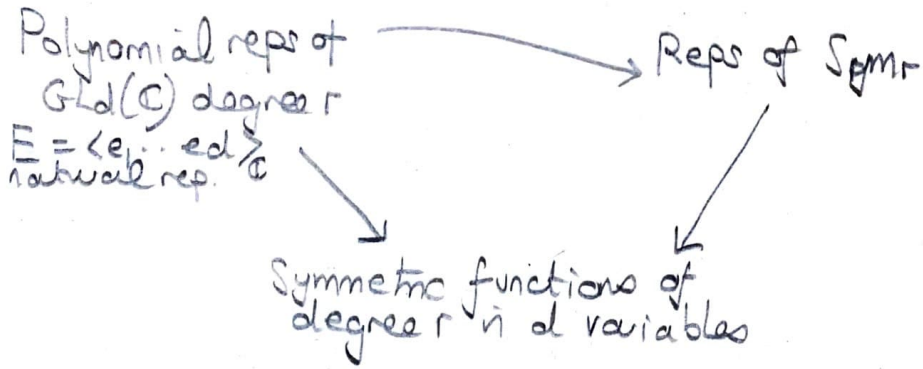 Polynomial reps of
GLd(ℂ) degree r
E = <e₁... ed>ℂ
natural rep.
Reps of Symr
Symmetric functions of
degree r in d variables